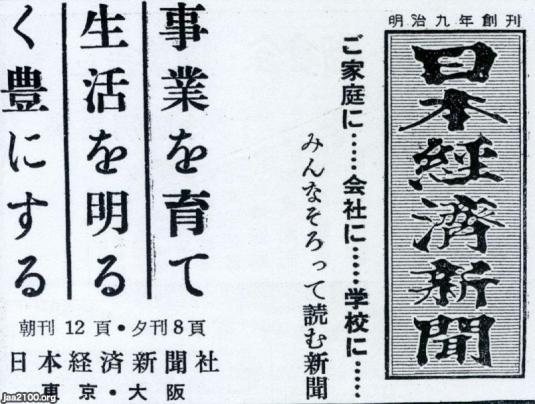 明治九年創刊
日本経済新聞
ご家庭に……会社に……学校に……
みんなそろって読む新聞
事業を育て
生活を明る
く豊にする
朝刊12頁・夕刊8頁
日本経済新聞社
東京・大阪
Jaa2100.org